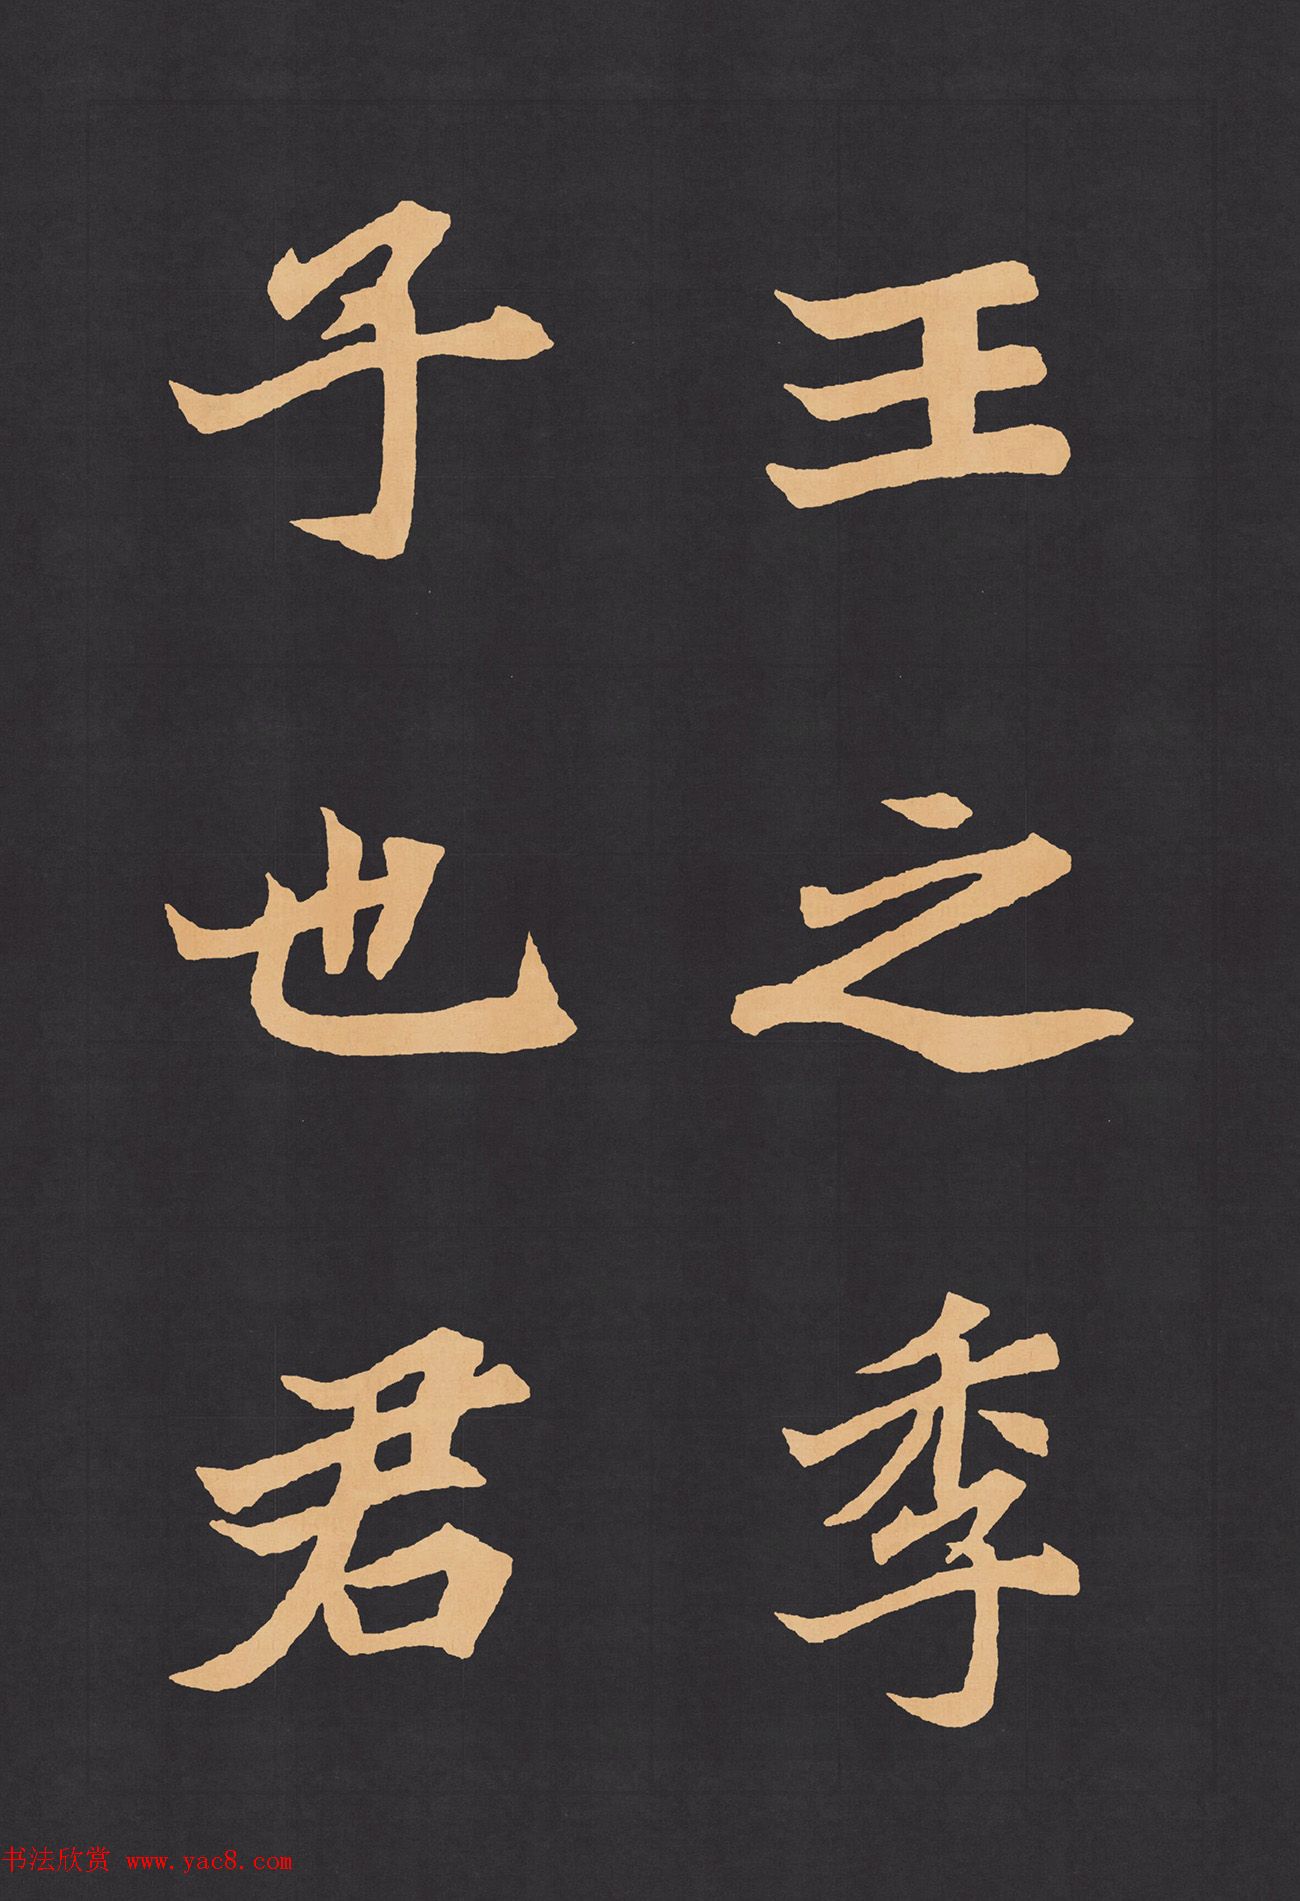 王之季
子也君
书法欣赏 www.yac8.com